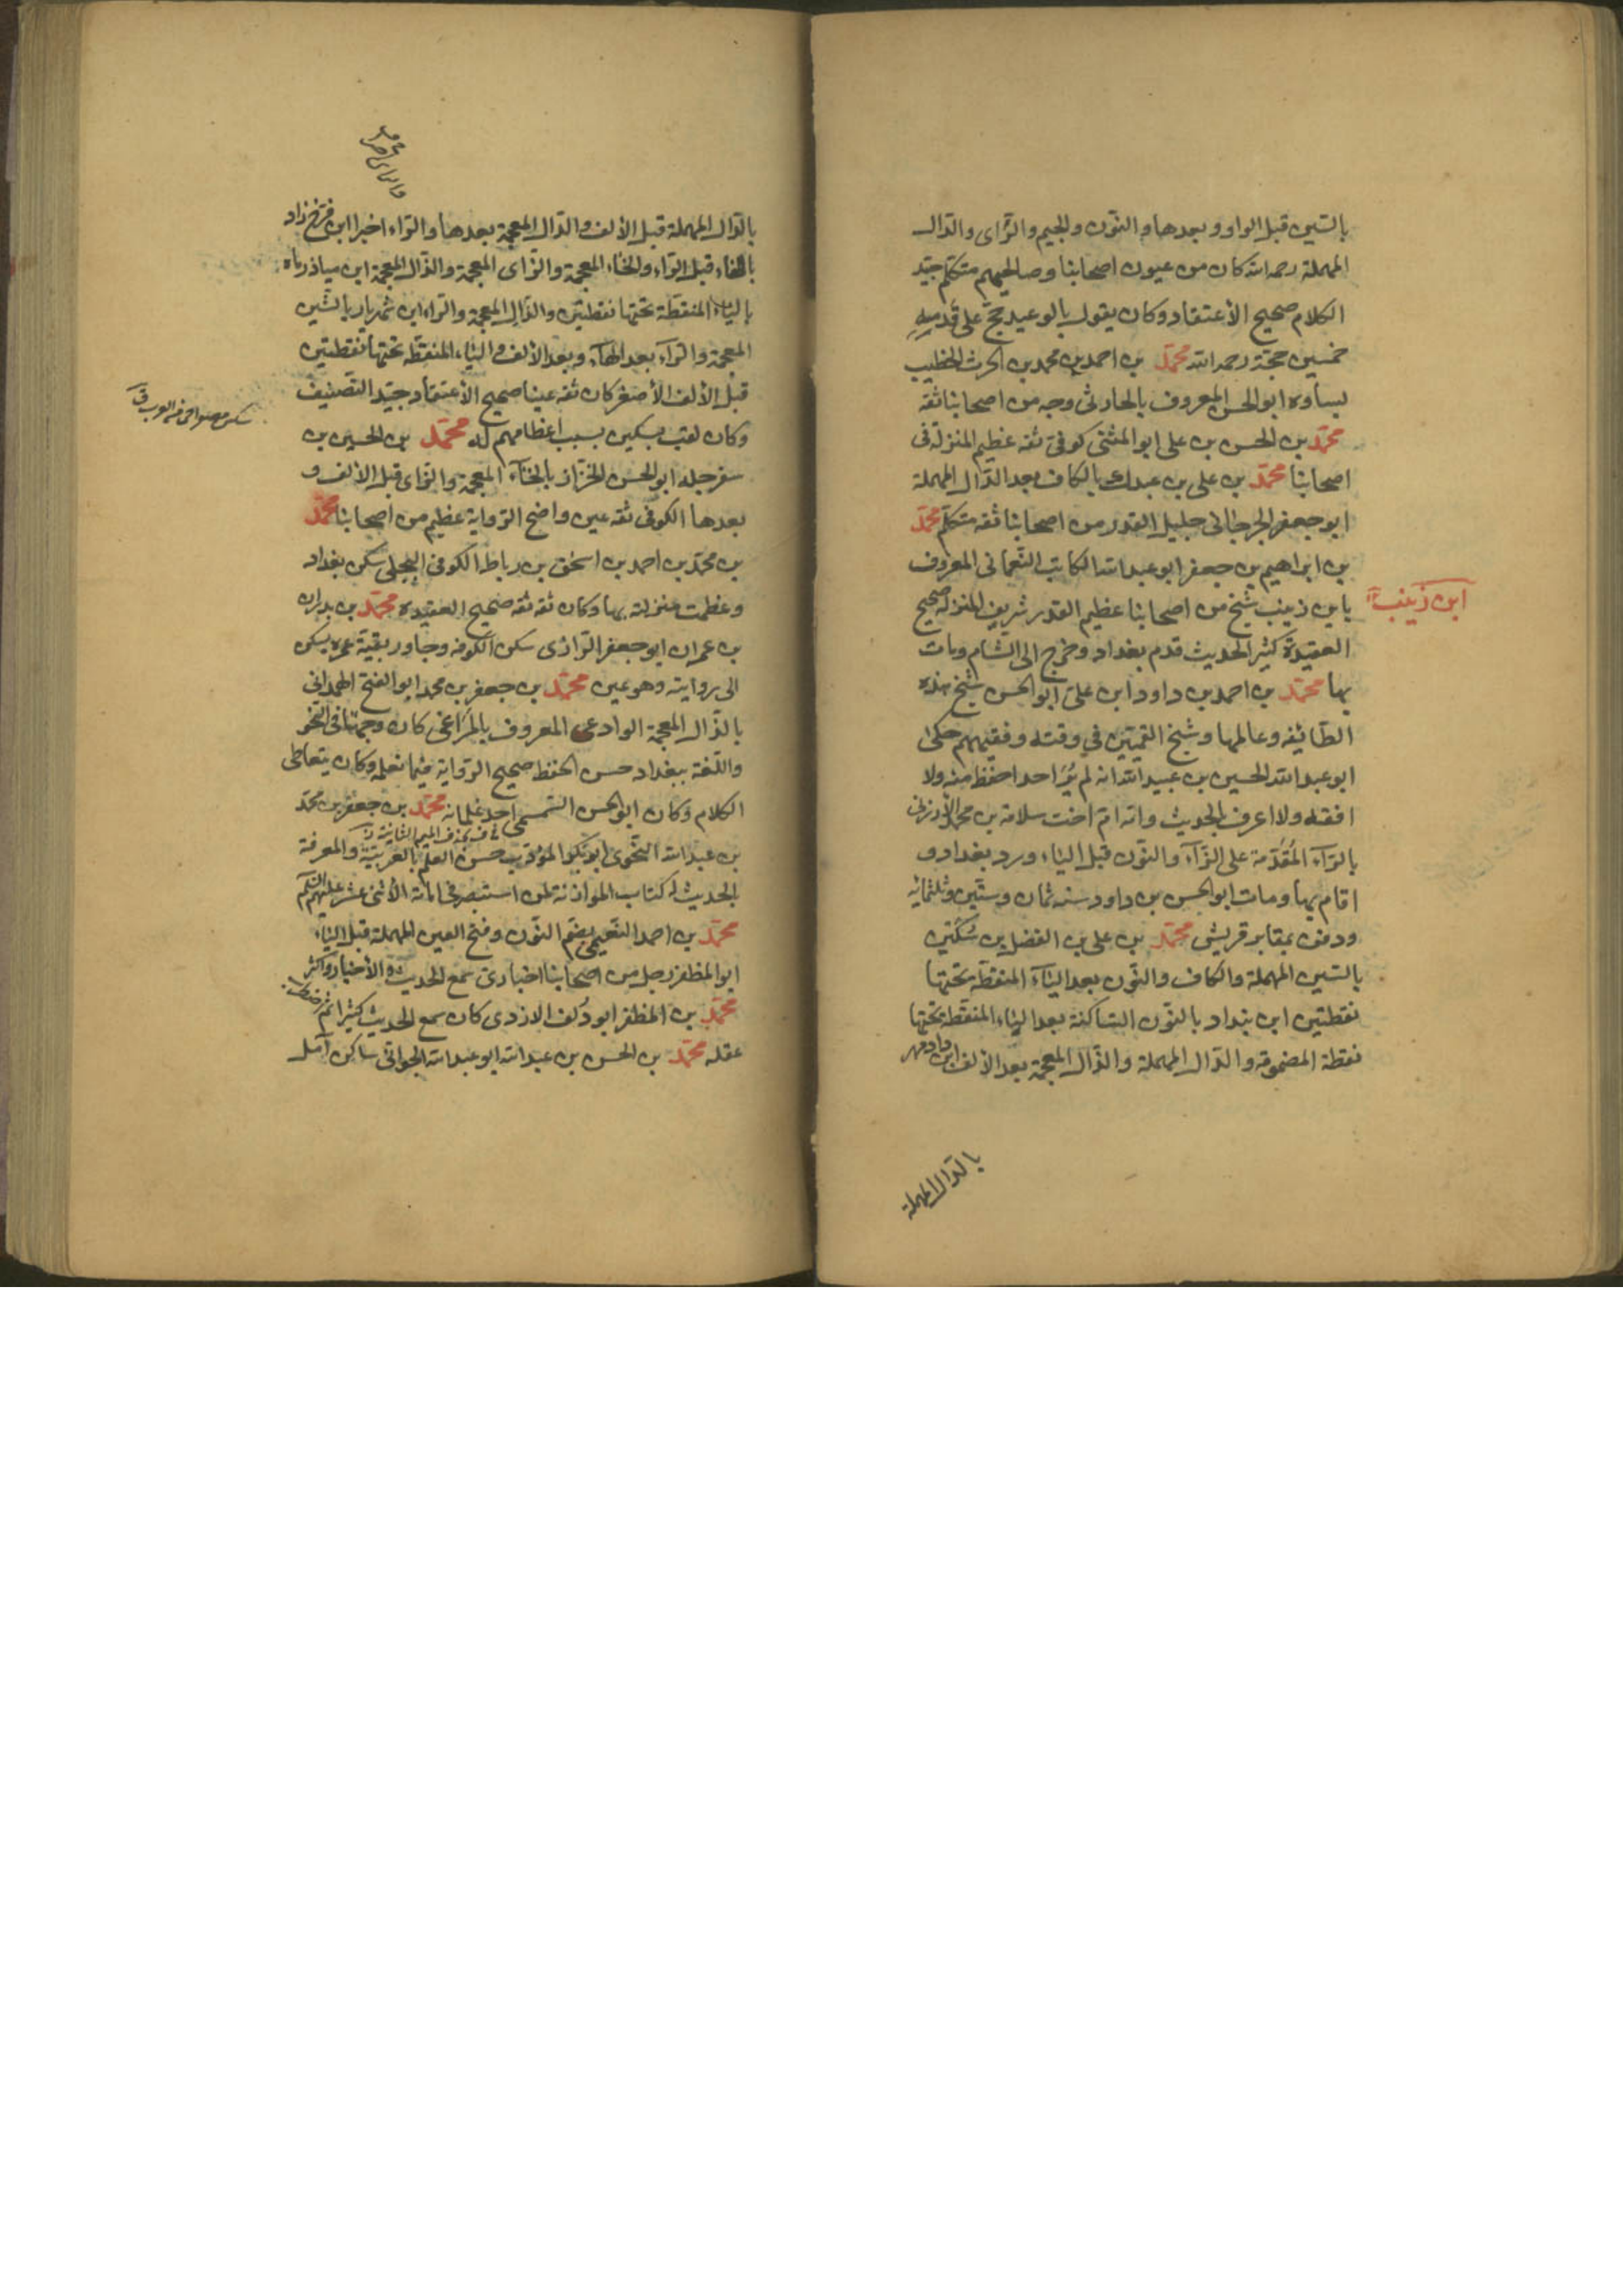 بالسّين قبل الواو وبعدها والنّون والجيم والرّاى والدّال
المهملة رحمه الله كان من عيون اصحابنا وصالحيهم متكلم جيّد
الكلام صحيح الأعتقاد وكان يقول بالوعيد حجّ على قدميه
خمسين حجّة رحمه الله محمّد بن احمد بن محمد بن الحرث الخطيب
بساوه ابو الحسن المعروف بالحارثى وجه من اصحابنا ثقه
محمّد بن الحسن بن على ابو المثنى كوفى ثقه عظيم المنزلة فى
اصحابنا محمّد بن على بن عبدك بالكاف بعد الدّال المهملة
ابو جعفر الجرجانى جليل القدر من اصحابنا ثقه متكلم محمّد
بن ابراهيم بن جعفر ابو عبد الله الكاتب النّعمانى المعروف
ابن زينب
بابن زينب شيخ من اصحابنا عظيم القدر شريف المنزلة صحيح
العقيدة كثير الحديث قدم بغداد وخرج الى الشام ومات
بها محمّد بن احمد بن داود ابن على ابو الحسن شيخ هذه
الطّائفه وعالمها وشيخ القمّيّين فى وقته وفقيههم حكى
ابو عبد الله الحسين بن عبيد الله انه لم يُرَ احدا احفظ منه ولا
افقه ولا اعرف بالحديث وانه امّ اخت سلامة بن محمد الأرزنى
بالرّآء المُقدَّمة على الزّآء والنّون قبل الياء ورد بغداد و
اقام بها ومات ابو الحسن بن داود سنه ثمان وستّين وثلثمائه
ودفن بمقابر قريش محمّد بن على بن الفضل بن سُكَّين
بالسّين المهملة والكاف والنّون بعد اليآء المنقطّة تحتها
نقطتين ابن بنداد بالنّون السّاكنة بعد الباء المنقطة تحتها
نقطة المضمومة والدّال المهملة والذّال المعجمة بعد الألف ابن دادمهر
بالدّال المهملة
بالدّال المهملة قبل الألف والذّال المعجمة بعدها والرّاء اخيرا ابن فرّخ زاد
بالفاء قبل الرّاء والخاء المعجمة والزّاى المعجمة والذّال المعجمة ابن مياذرماه
بالياء المنقطّة تحتها نقطتين والذّال المعجمة والرّاء ابن شهريار بالشّين
المعجمة والرّآء بعد الهآء وبعد الألف والياء المنقطّه تحتها نقطتين
قبل الألف الأصغر كان ثقه عينا صحيح الأعتقاد جيّد التّصنيف
وكان لقب بسكين بسبب اعظامهم له محمّد بن الحسين بن
سفرجله ابو الحسن الخزّاز بالخآء المعجمة والزّاى قبل الألف و
بعدها الكوفى ثقه عين واضح الرّواية عظيم من اصحابنا محمّد
بن محمّد بن احمد بن اسحٰق بن رباط الكوفى البجلى سكن بغداد
وعظمت منزلته بها وكان ثقه ثقه صحيح العقيده محمّد بن بدران
بن عمران ابو جعفر الرّازى سكن الكوفه وجاور بقيّة عمره يسكن
الى روايته وهو عين محمّد بن جعفر بن محمد ابو الفتح الهمدانى
بالذّال المعجمة الوادعى المعروف بالمَرَاغى كان وجها فى النّحو
واللّغة ببغداد حسن الحفظ صحيح الرّواية فيما نعلمه وكان يتعاطى
الكلام وكان ابو الحسن السّمسمى احد غلمانه محمّد بن جعفر بن محمّد
بن عبد الله النّحوى ابو بكر المؤدّب حسن العلم بالعربيّة والمعرفة
بالحديث له كتاب الموازنة لمن استبصر فى امامة الأثنى عشر عليهم السّلم
محمّد بن احمد النّعيمى بضمّ النّون وفتح العين المهملة قبل الياء
ابو المظفر رجل من اصحابنا اخبارى سمع الحديث والأخبار واكثر
محمّد بن المظفر ابو دُلف الازدى كان سمع الحديث كثيرا ثم اضطرب
عقله محمّد بن الحسن بن عبد الله ابو عبد الله الجوانى ساكن آمل